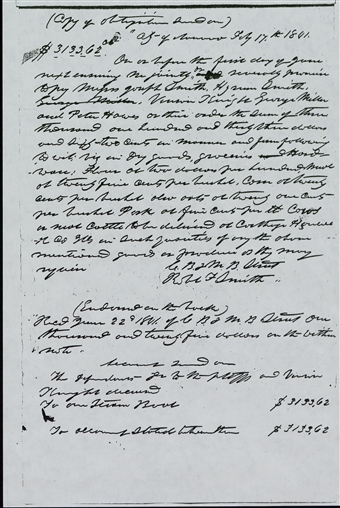 (Copy of obligation sued on)
$3133,62 City of Nauvoo Feby 17th 1841.
On or before the first day of June
next ensuing we jointly and severally promise
to pay Messrs Joseph Smith, Hyrum Smith,
George Miller, Vinson Knight, George Miller
and Peter Haws or their order the sum of three
thousand one hundred and thirty three dollars
and sixty two cents in manner and form following
to wit. viz in dry goods, groceries and Hard
ware; Flour at two dollars per hundred
at twenty five cents per bushel, Corn at twenty
cents per bushel also oats at twenty cents
per bushel Pork at five cents per lb Cows
or neat Cattle to be delivered at Carthage Hancock
Co Ills in such quantities of any the above
mentioned goods or produce as they may
require
C B & M B Street
R. M. Smith
(Endorsed on the back)
Recd June 22d 1841 of C B & M B Street One
thousand and twenty five dollars on the within
note.
Account sued on
The defendants Dr to the plffs and Vinson
Knight deceased
To one Steam Boat $3133,62
To account stated $3133,62